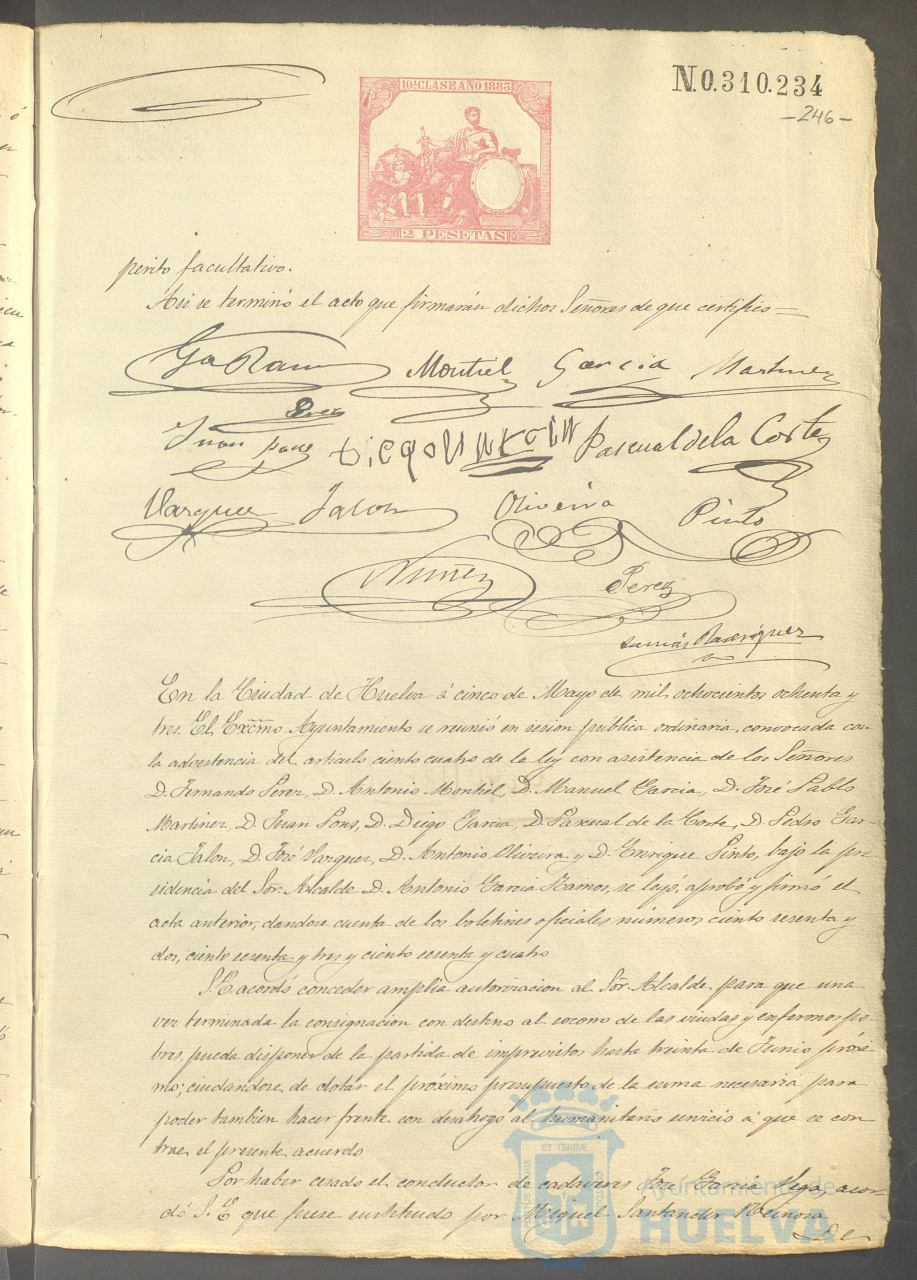 10ª CLASE AÑO 1883
N.0.310.234
-246-
2 PESETAS
perito facultativo.
Asi se terminó el acto que firmarán dichos Señores de que certifico=
Gª Ramos Montiel Garcia Martinez
Perez
Juan Pons Diego Garcia Pascual de la Corte
Vazquez Jalon Oliveira Pinto
Nuñez Perez
Tomás Rodriguez
En la Ciudad de Huelva á cinco de Mayo de mil ochocientos ochenta y
tres. El Excmo Ayuntamiento se reunió en sesion publica ordinaria, convocada con
la advertencia del articulo ciento cuatro de la ley con asistencia de los Señores
D. Fernando Perez, D. Antonio Montiel, D. Manuel Garcia, D. José Pablo
Martinez, D. Juan Pons, D. Diego Garcia, D. Pascual de la Corte, D. Pedro Gar-
cia Jalon, D. José Vazquez, D. Antonio Oliveira y D. Enrique Pinto, bajo la pre-
sidencia del Sor. Alcalde D. Antonio Garcia Ramos, se leyó, aprobó y firmó el
acta anterior, dandose cuenta de los boletines oficiales números ciento sesenta y
dos, ciento sesenta y tres y ciento sesenta y cuatro
S. E. acordó conceder amplia autorizacion al Sor. Alcalde para que una
vez terminada la consignacion con destino al socorro de las viudas y enfermos po-
bres, pueda disponer de la partida de imprevistos hasta treinta de Junio proxi-
mo; cuidandose, de dotar el próximo presupuesto de la suma necesaria para
poder tambien hacer frente con desahogo al humanitario servicio á que se con
trae el presente acuerdo
Por haber cesado el conductor de cadaveres José Garcia Vega, acor-
dó S. E. que fuese sustituido por Miguel Santander Reinoso
De
ET TERRÆ
Ayuntamiento de
HUELVA